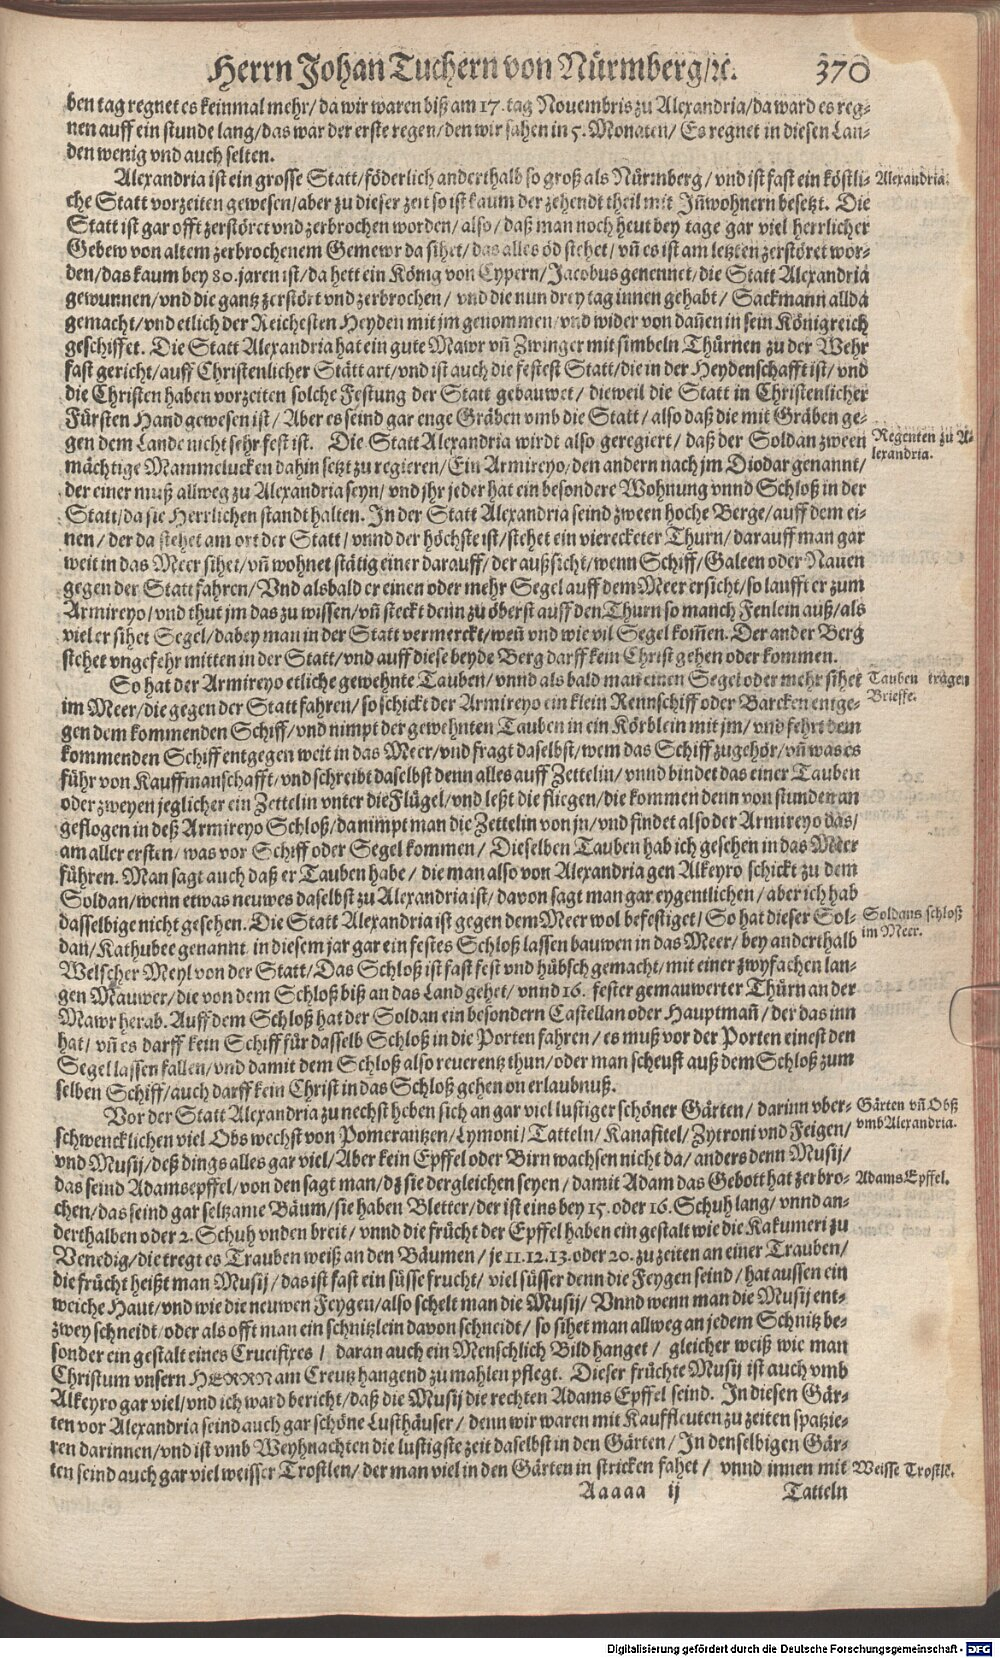 Herrn Johan Tuchern von Nürmberg/ꝛc. 370
ben tag regnet es keinmal mehr/ da wir waren biß am 17. tag Nouembris zu Alexandria/ da ward es reg-
nen auff ein stunde lang/ das war der erste regen/ den wir sahen in 5. Monaten/ Es regnet in diesen Lan-
den wenig vnd auch selten.
Alexandria ist ein grosse Statt/ föderlich anderthalb so groß als Nürmberg/ vnd ist fast ein köstli-
Alexandria.
che Statt vorzeiten gewesen/ aber zu dieser zeit so ist kaum der zehendt theil mit Jñwohnern besetzt. Die
Statt ist gar offt zerstöret vnd zerbrochen worden/ also/ daß man noch heut bey tage gar viel herrlicher
Gebew von altem zerbrochenem Gemewr da sihet/ das alles öd stehet/ vñ es ist am letzten zerstöret wor-
den/ das kaum bey 80. jaren ist/ da hett ein König von Cypern/ Jacobus genennet/ die Statt Alexandria
gewunnen/ vnd die gantz zerstört vnd zerbrochen/ vnd die nun drey tag innen gehabt/ Sackmann allda
gemacht/ vnd etlich der Reichesten Heyden mit jm genommen/ vnd wider von dañen in sein Königreich
geschiffet. Die Statt Alexandria hat ein gute Mawr vñ Zwinger mit simbeln Thürnen zu der Wehr
fast gericht/ auff Christenlicher Stätt art/ vnd ist auch die festest Statt/ die in der Heydenschafft ist/ vnd
die Christen haben vorzeiten solche Festung der Statt gebauwet/ dieweil die Statt in Christenlicher
Fürsten Hand gewesen ist/ Aber es seind gar enge Gräben vmb die Statt/ also daß die mit Gräben ge-
gen dem Lande nicht sehr fest ist. Die Statt Alexandria wirdt also geregiert/ daß der Soldan zween
Regenten zu A-
lexandria.
mächtige Mammelucken dahin setzt zu regieren/ Ein Armireyo/ den andern nach jm Diodar genannt/
der einer muß allweg zu Alexandria seyn/ vnd jhr jeder hat ein besondere Wohnung vnnd Schloß in der
Statt/ da sie Herrlichen standt halten. In der Statt Alexandria seind zween hoche Berge/ auff dem ei-
nen/ der da stehet am ort der Statt/ vnnd der höchste ist/ stehet ein viereckter Thurn/ darauff man gar
weit in das Meer sihet/ vñ wohnet stätig einer darauff/ der außsicht/ wenn Schiff/ Galeen oder Nauen
gegen der Statt fahren/ Vnd alsbald er einen oder mehr Segel auff dem Meer ersicht/ so laufft er zum
Armireyo/ vnd thut jm das zu wissen/ vñ steckt denn zu öberst auff den Thurn so manch Fenlein auß/ als
viel er sihet Segel/ dabey man in der Statt vermerckt/ weñ vnd wie vil Segel kom̃en. Der ander Berg
stehet vngefehr mitten in der Statt/ vnd auff diese beyde Berg darff kein Christ gehen oder kommen.
So hat der Armireyo etliche gewehnte Tauben/ vnnd als bald man einen Segel oder mehr sihet
Tauben trägen
Brieffe.
im Meer/ die gegen der Statt fahren/ so schickt der Armireyo ein klein Rennschiff oder Barcken entge-
gen dem kommenden Schiff/ vnd nimpt der gewehnten Tauben in ein Körblein mit jm/ vnd fehrt dem
kommenden Schiff entgegen weit in das Meer/ vnd fragt daselbst/ wem das Schiff zugehör/ vñ was es
führ von Kauffmanschafft/ vnd schreibt daselbst denn alles auff Zettelin/ vnnd bindet das einer Tauben
oder zweyen jeglicher ein Zettelin vnter die Flügel/ vnd leßt die fliegen/ die kommen denn von stunden an
geflogen in deß Armireyo Schloß/ da nimpt man die Zettelin von jn/ vnd findet also der Armireyo das/
am aller ersten/ was vor Schiff oder Segel kommen/ Dieselben Tauben hab ich gesehen in das Meer
führen. Man sagt auch daß er Tauben habe/ die man also von Alexandria gen Alkeyro schickt zu dem
Soldan/ wenn etwas neuwes daselbst zu Alexandria ist/ davon sagt man gar eygentlichen/ aber ich hab
dasselbige nicht gesehen. Die Statt Alexandria ist gegen dem Meer wol befestiget/ So hat dieser Sol-
Soldans schloß
im Meer.
dan/ Kathubee genannt/ in diesem jar gar ein festes Schloß lassen bauwen in das Meer/ bey anderthalb
Welscher Meyl von der Statt/ Das Schloß ist fast fest vnd hübsch gemacht/ mit einer zwyfachen lan-
gen Mauwer/ die von dem Schloß biß an das Land gehet/ vnnd 16. fester gemauwerter Thürn an der
Mawr herab. Auff dem Schloß hat der Soldan ein besondern Castellan oder Hauptmañ/ der das inn
hat/ vñ es darff kein Schiff für dasselb Schloß in die Porten fahren/ es muß vor der Porten einest den
Segel lassen fallen/ vnd damit dem Schloß also reuerentz thun/ oder man scheust auß dem Schloß zum
selben Schiff/ auch darff kein Christ in das Schloß gehen on erlaubnuß.
Vor der Statt Alexandria zu nechst heben sich an gar viel lustiger schöner Gärten/ darinn vber-
Gärten vñ Obß
vmb Alexandria.
schwencklichen viel Obs wechst von Pomerantzen/ Lymoni/ Tatteln/ Kanafitel/ Zytroni vnd Feigen/
vnd Musij/ deß dings alles gar viel/ Aber kein Epffel oder Birn wachsen nicht da/ anders denn Musij/
das seind Adamsepffel/ von den sagt man/ dz sie dergleichen seyen/ damit Adam das Gebott hat zerbro-
Adams Epffel.
chen/ das seind gar seltzame Bäum/ sie haben Bletter/ der ist eins bey 15. oder 16. Schuh lang/ vnnd an-
derthalben oder 2. Schuh vnden breit/ vnnd die frücht der Epffel haben ein gestalt wie die Kakumeri zu
Venedig/ die tregt es Trauben weiß an den Bäumen/ je 11. 12. 13. oder 20. zu zeiten an einer Trauben/
die frücht heißt man Musij/ das ist fast ein süsse frucht/ viel süsser denn die Feygen seind/ hat aussen ein
weiche Haut/ vnd wie die neuwen Feygen/ also schelt man die Musij/ Vnnd wenn man die Musij ent-
zwey schneidt/ oder als offt man ein schnitzlein davon schneidt/ so sihet man allweg an jedem Schnitz be-
sonder ein gestalt eines Crucifixes/ daran auch ein Menschlich Bild hanget/ gleicher weiß wie man
Christum vnsern HERRN am Creutz hangend zu mahlen pflegt. Dieser früchte Musij ist auch vmb
Alkeyro gar viel/ vnd ich ward bericht/ daß die Musij die rechten Adams Epffel seind. In diesen Gär-
ten vor Alexandria seind auch gar schöne Lusthäuser/ denn wir waren mit Kauffleuten zu zeiten spatzie-
ren darinnen/ vnd ist vmb Weyhnachten die lustigste zeit daselbst in den Gärten/ In denselbigen Gär-
ten seind auch gar viel weisser Trostlen/ der man viel in den Gärten in stricken fahet/ vnnd innen mit
Weisse Trostlē.
Aaaaa ij Tatteln
Digitalisierung gefördert durch die Deutsche Forschungsgemeinschaft - DFG